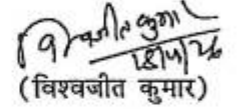 विश्वजीत कुमार
18/11/26
(विश्वजीत कुमार)